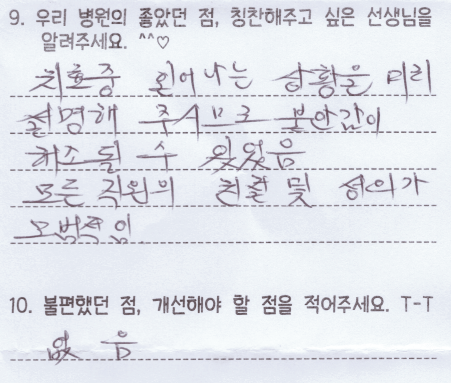 9. 우리 병원의 좋았던 점, 칭찬해주고 싶은 선생님을
알려주세요. ^^♡
치료중 일어나는 상황을 미리
설명해 주시므로 불안감이
해소될 수 있었음
모든 직원의 친절 및 성의가
모범적임
10. 불편했던 점, 개선해야 할 점을 적어주세요. T-T
없음